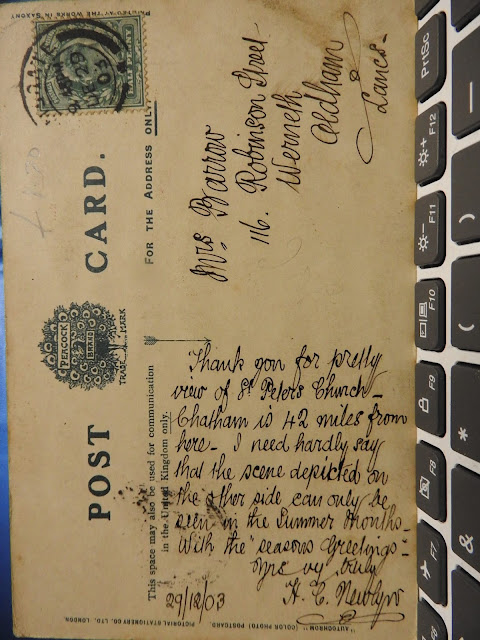 POST CARD.
PEACOCK
BRAND
TRADE MARK
This space may also be used for communication
in the United Kingdom only.
FOR THE ADDRESS ONLY
HALF PENNY
PRINTED AT THE WORKS IN SAXONY
Thank you for pretty
view of St Peters Church –
Chatham is 42 miles from
here – I need hardly say
that the scene depicted on
the other side can only be
seen in the Summer months –
With the "seasons Greetings –
Yrs vy truly
29/12/03
Mrs Barrow
116. Robinson Street
Werneth
Oldham
Lancs–
"AUTOCHROM" (COLOR PHOTO) POSTCARD.
PICTORIAL STATIONERY CO. LTD. LONDON.
PrtSc
F12
F11
F10
F9
F8
F7
F6
)
(
*
&